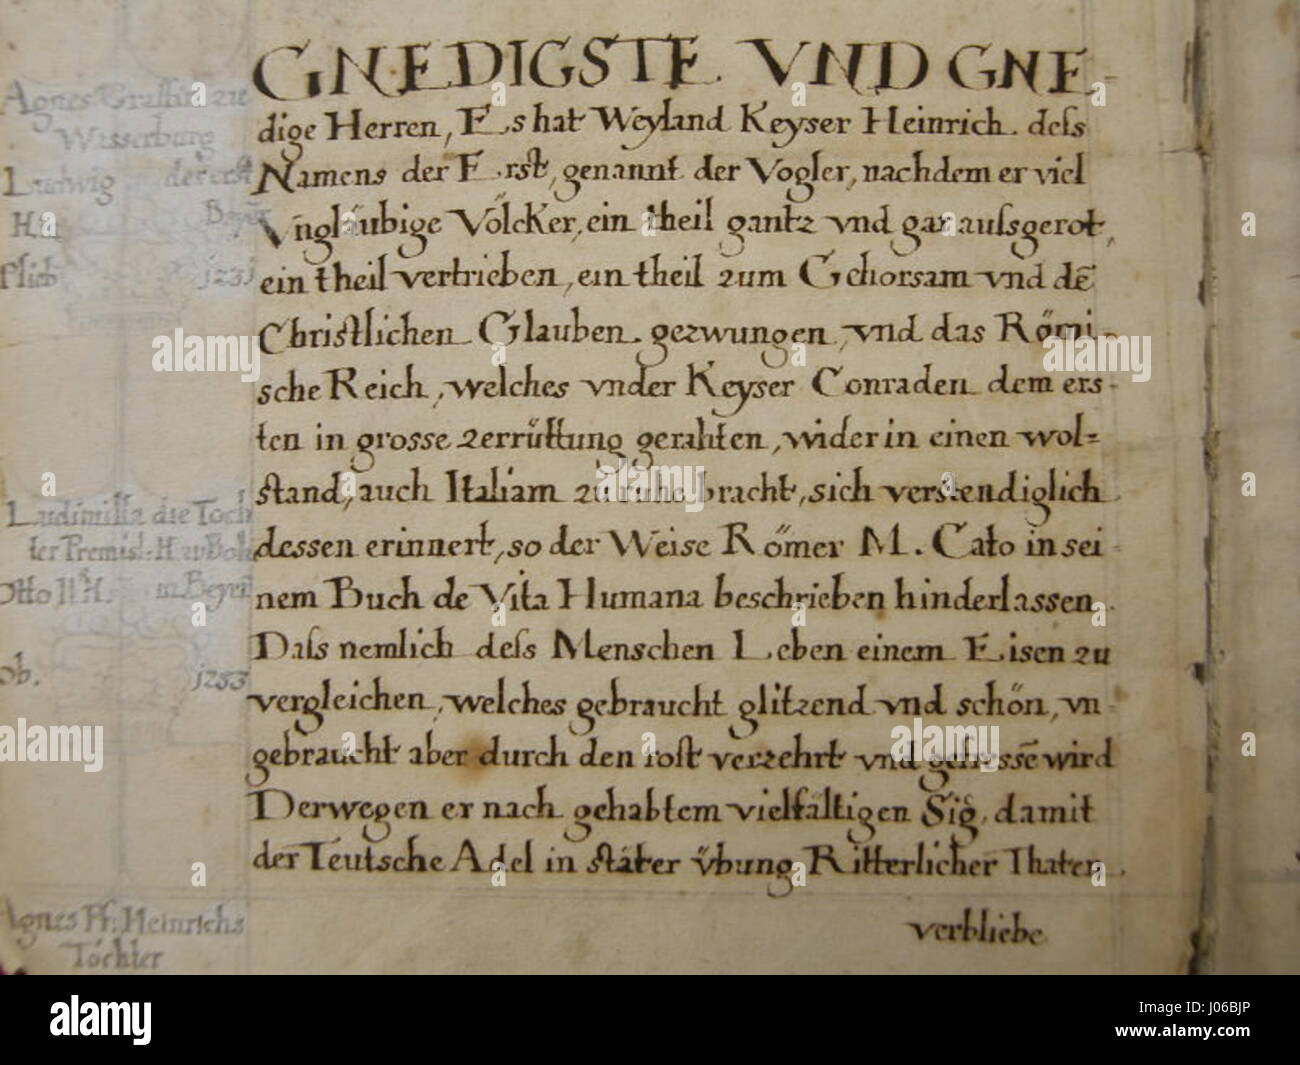 GNEDIGSTE VND GNE-
dige Herren, Es hat Weyland Keyser Heinrich dess
Namens der Erst, genannt der Vogler, nachdem er viel
Vnglaubige Völcker, ein theil gantz vnd gar aussgerot,
ein theil vertrieben, ein theil zum Gehorsam vnd dē
Christlichen Glauben gezwungen, vnd das Römi-
sche Reich, welches vnder Keyser Conraden dem ers-
ten in grosse zerrüttung gerahten, widerin einen wol-
stand, auch Italiam zu ruhe bracht, sich verstendiglich
dessen erinnert, so der Weise Römer M. Cato in sei-
nem Buch de Vita Humana beschrieben hinderlassen.
Dass nemlich dess Menschen Leben einem Eisen zu
vergleichen, welches gebraucht glitzend vnd schön, vn-
gebraucht aber durch den rost verzehrt vnd gefressē wird
Derwegen er nach gehabtem vielfältigen Sig, damit
der Teutsche Adel in stäter übung Ritterlicher Thaten
verbliebe
Agnes zu
Wasserburg
Ludwig der erst
1231
Ludimilla die Toch
ter
Otto II H. in Beyrn
ob. 1253
Agnes Pf. Heinrichs
Tochter
alamy
alamy
Image ID: J06BJP
www.alamy.com